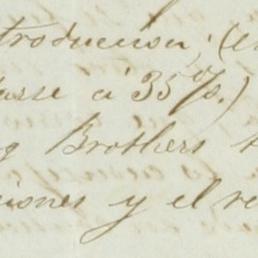 troduccion; (
asse a 35 %.)
g Brothers
iones y el re